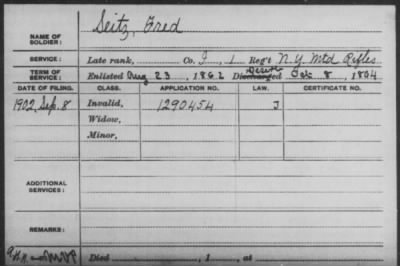 Seitz, Fred
NAME OF SOLDIER:
SERVICE: Late rank, Co. I, 1 Reg't N.Y. Mtd Rifles
TERM OF SERVICE: Enlisted Aug 23, 1862 Discharged Desert Oct 8, 1864
DATE OF FILING. CLASS. APPLICATION NO. LAW. CERTIFICATE NO.
1902, Sep. 8 Invalid, 1290454 J
Widow,
Minor,
ADDITIONAL SERVICES:
REMARKS:
Died , 1 , at